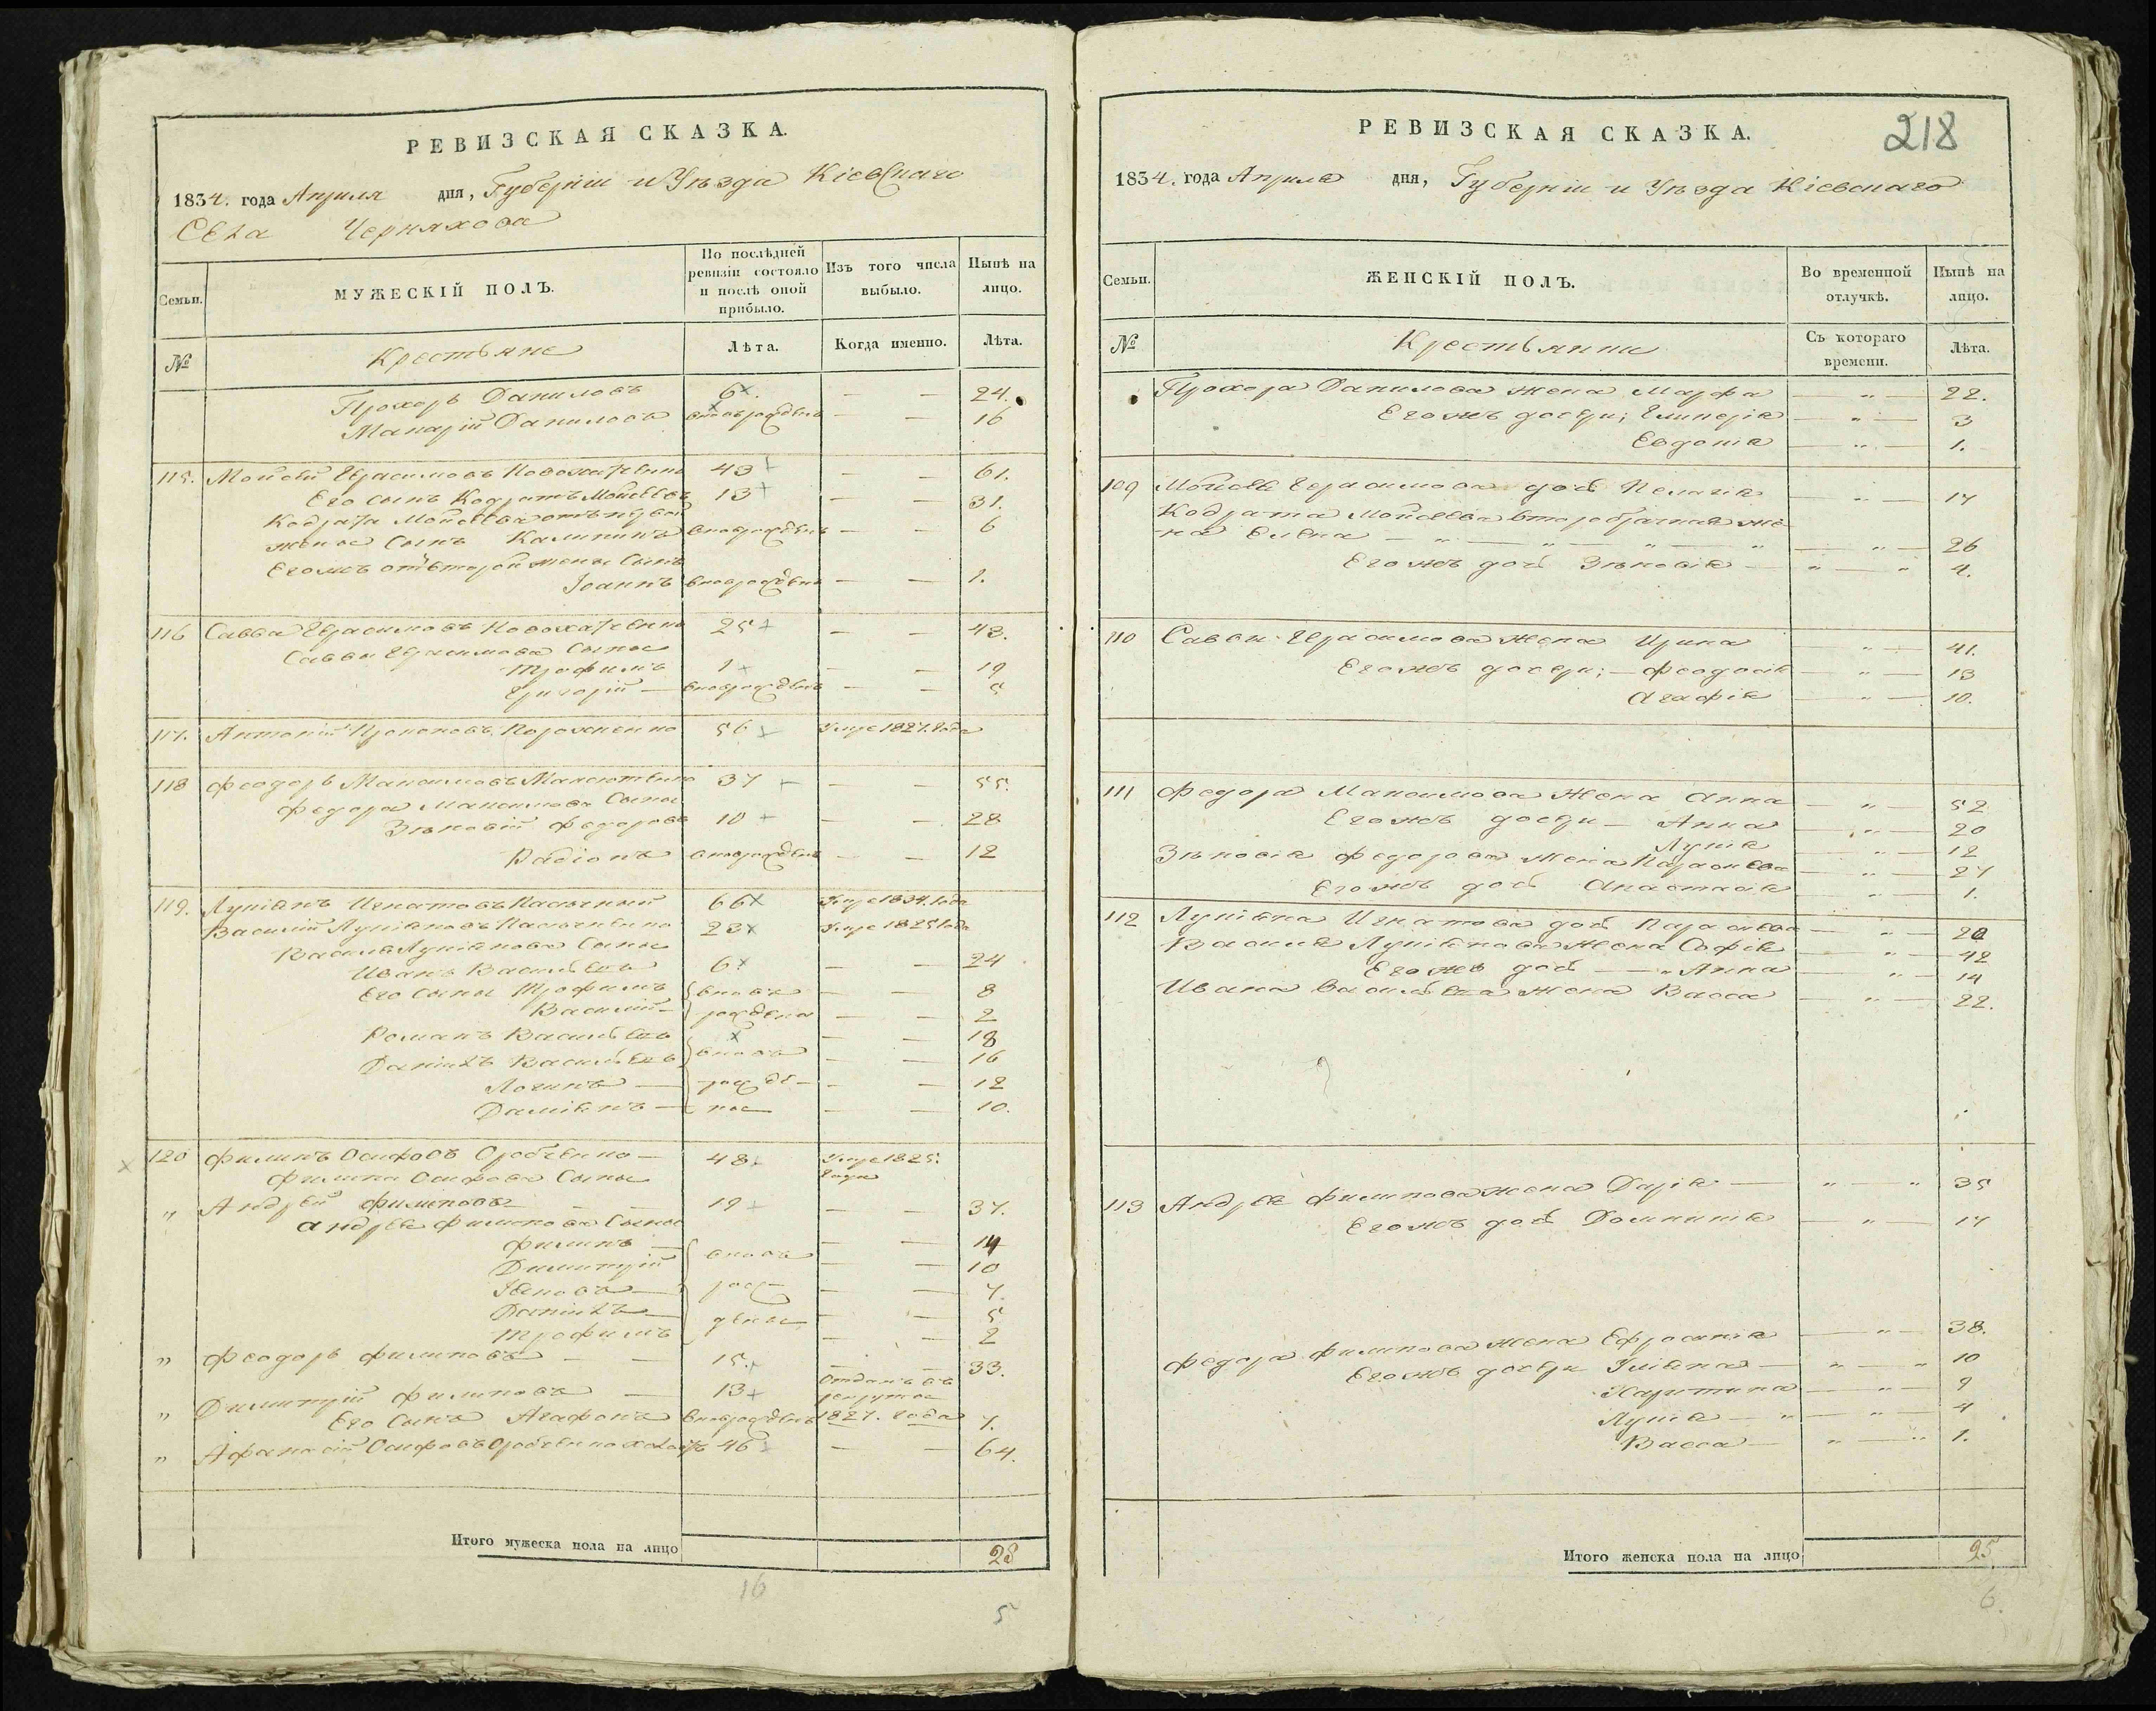 РЕВИЗСКАЯ СКАЗКА.
1834. года Апреля дня, Губерніи и Уѣзда Кіевскаго
Села Черняхова
Семьи.
МУЖЕСКІЙ ПОЛЪ.
По послѣдней ревизіи состояло и послѣ оной прибыло.
Изъ того числа выбыло.
Нынѣ на лицо.
№
Крестьяне
Лѣта.
Когда именно.
Лѣта.
Прохоръ Даниловъ 6 — — 24.
Макарій Даниловъ вновьрожденъ — — 16
115. Мойсей Герасимовъ 43 — — 61.
Его сынъ Кодратъ Мойсеевъ 13 — — 31.
Кодрата Мойсеева отъ первой
жены сынъ Калиникъ вновьрожденъ — — 6
Егожъ отъ второй жены сынъ
Іоаннъ вновьрожденъ — — 1.
116 Савва Герасимовъ 25 — — 43.
Саввы Герасимова сыны
Трофимъ 1 — — 19
Григорій — вновьрожденъ — — 5
117. Антоній Прокоповъ 56 Умре 1827. года
118 Феодоръ Максимовъ 37 — — 55.
Федора Максимова сыны
Зѣновій Федоровъ 10 — — 28
Радіонъ вновьрожденъ — — 12
119. Лукіянъ Игнатовъ 66 Умре 1834. года
Василій Лукіяновъ 23 Умре 1825 года
Василія Лукіянова сыны
Иванъ Васильевъ 6 — — 24
Его сыны Трофимъ вновь — — 8
Василій — рождены — — 2
Романъ Васильевъ — — 18
Даніилъ Васильевъ вновь — — 16
Логинъ — рожде- — — 12
Даміянъ — ны — — 10.
120 Филипъ Осиповъ — 48 Умре 1825. года
Филипа Осипова сыны
" Андрей Филиповъ — — 19 — — 37.
Андрея Филипова сыны
Филипъ — вновь — — 14
Димитрій — — 10
Іяковъ — рож- — — 7.
Даніилъ — — — 5
Трофимъ дены — — 2
" Феодоръ Филиповъ — — 15. — — 33.
" Димитрій Филиповъ — 13 Отданъ въ рекруты
Его сынъ Агафонъ вновьрожденъ 1827. года 7.
" Афанасій Осиповъ 46 — — 64.
Итого мужеска пола на лицо 28
16
5
РЕВИЗСКАЯ СКАЗКА.
218
1834. года Апреля дня, Губерніи и Уѣзда Кіевскаго
Семьи.
ЖЕНСКІЙ ПОЛЪ.
Во временной отлучкѣ.
Нынѣ на лицо.
№
Крестьянки
Съ котораго времени.
Лѣта.
Прохора Данилова жена Марфа — " — 22.
Егожъ дочери; Гликерія — " — 3
Евдокія — " — 1.
109 Мойсея Герасимова дочь Пелагія — " — 17
Кодрата Мойсеева второбрачная же-
на Елена — " — " — " — " — 26
Егожъ дочь Зѣновія — " — " 4.
110 Саввы Герасимова жена Ирина — " — 41.
Егожъ дочери; — Феодосія — " — 13
Агафія — " — 10.
111 Федора Максимова жена Анна — " — 52
Егожъ дочери — Анна — " — 20
Лукія — " — 12
Зѣновія Федорова жена Параскева — " — 27
Егожъ дочь Анастасія — " — 1.
112 Лукіяна Игнатова дочь Параскева — " —
Василія Лукіянова жена Софія — " — 42
Егожъ дочь — " Анна " — 14
Ивана Васильева жена Васса — " — 22.
113 Андрея Филипова жена Дарія — " — " 35
Егожъ дочь Домникія — " — 17
Федора Филипова жена Ефросинія — " — 38.
Егожъ дочери Уліяна — " — " 10
Харитина — " — 9
Лукія — " — " — 4
Васса — " — " 1.
Итого женска пола на лицо 25.
6.